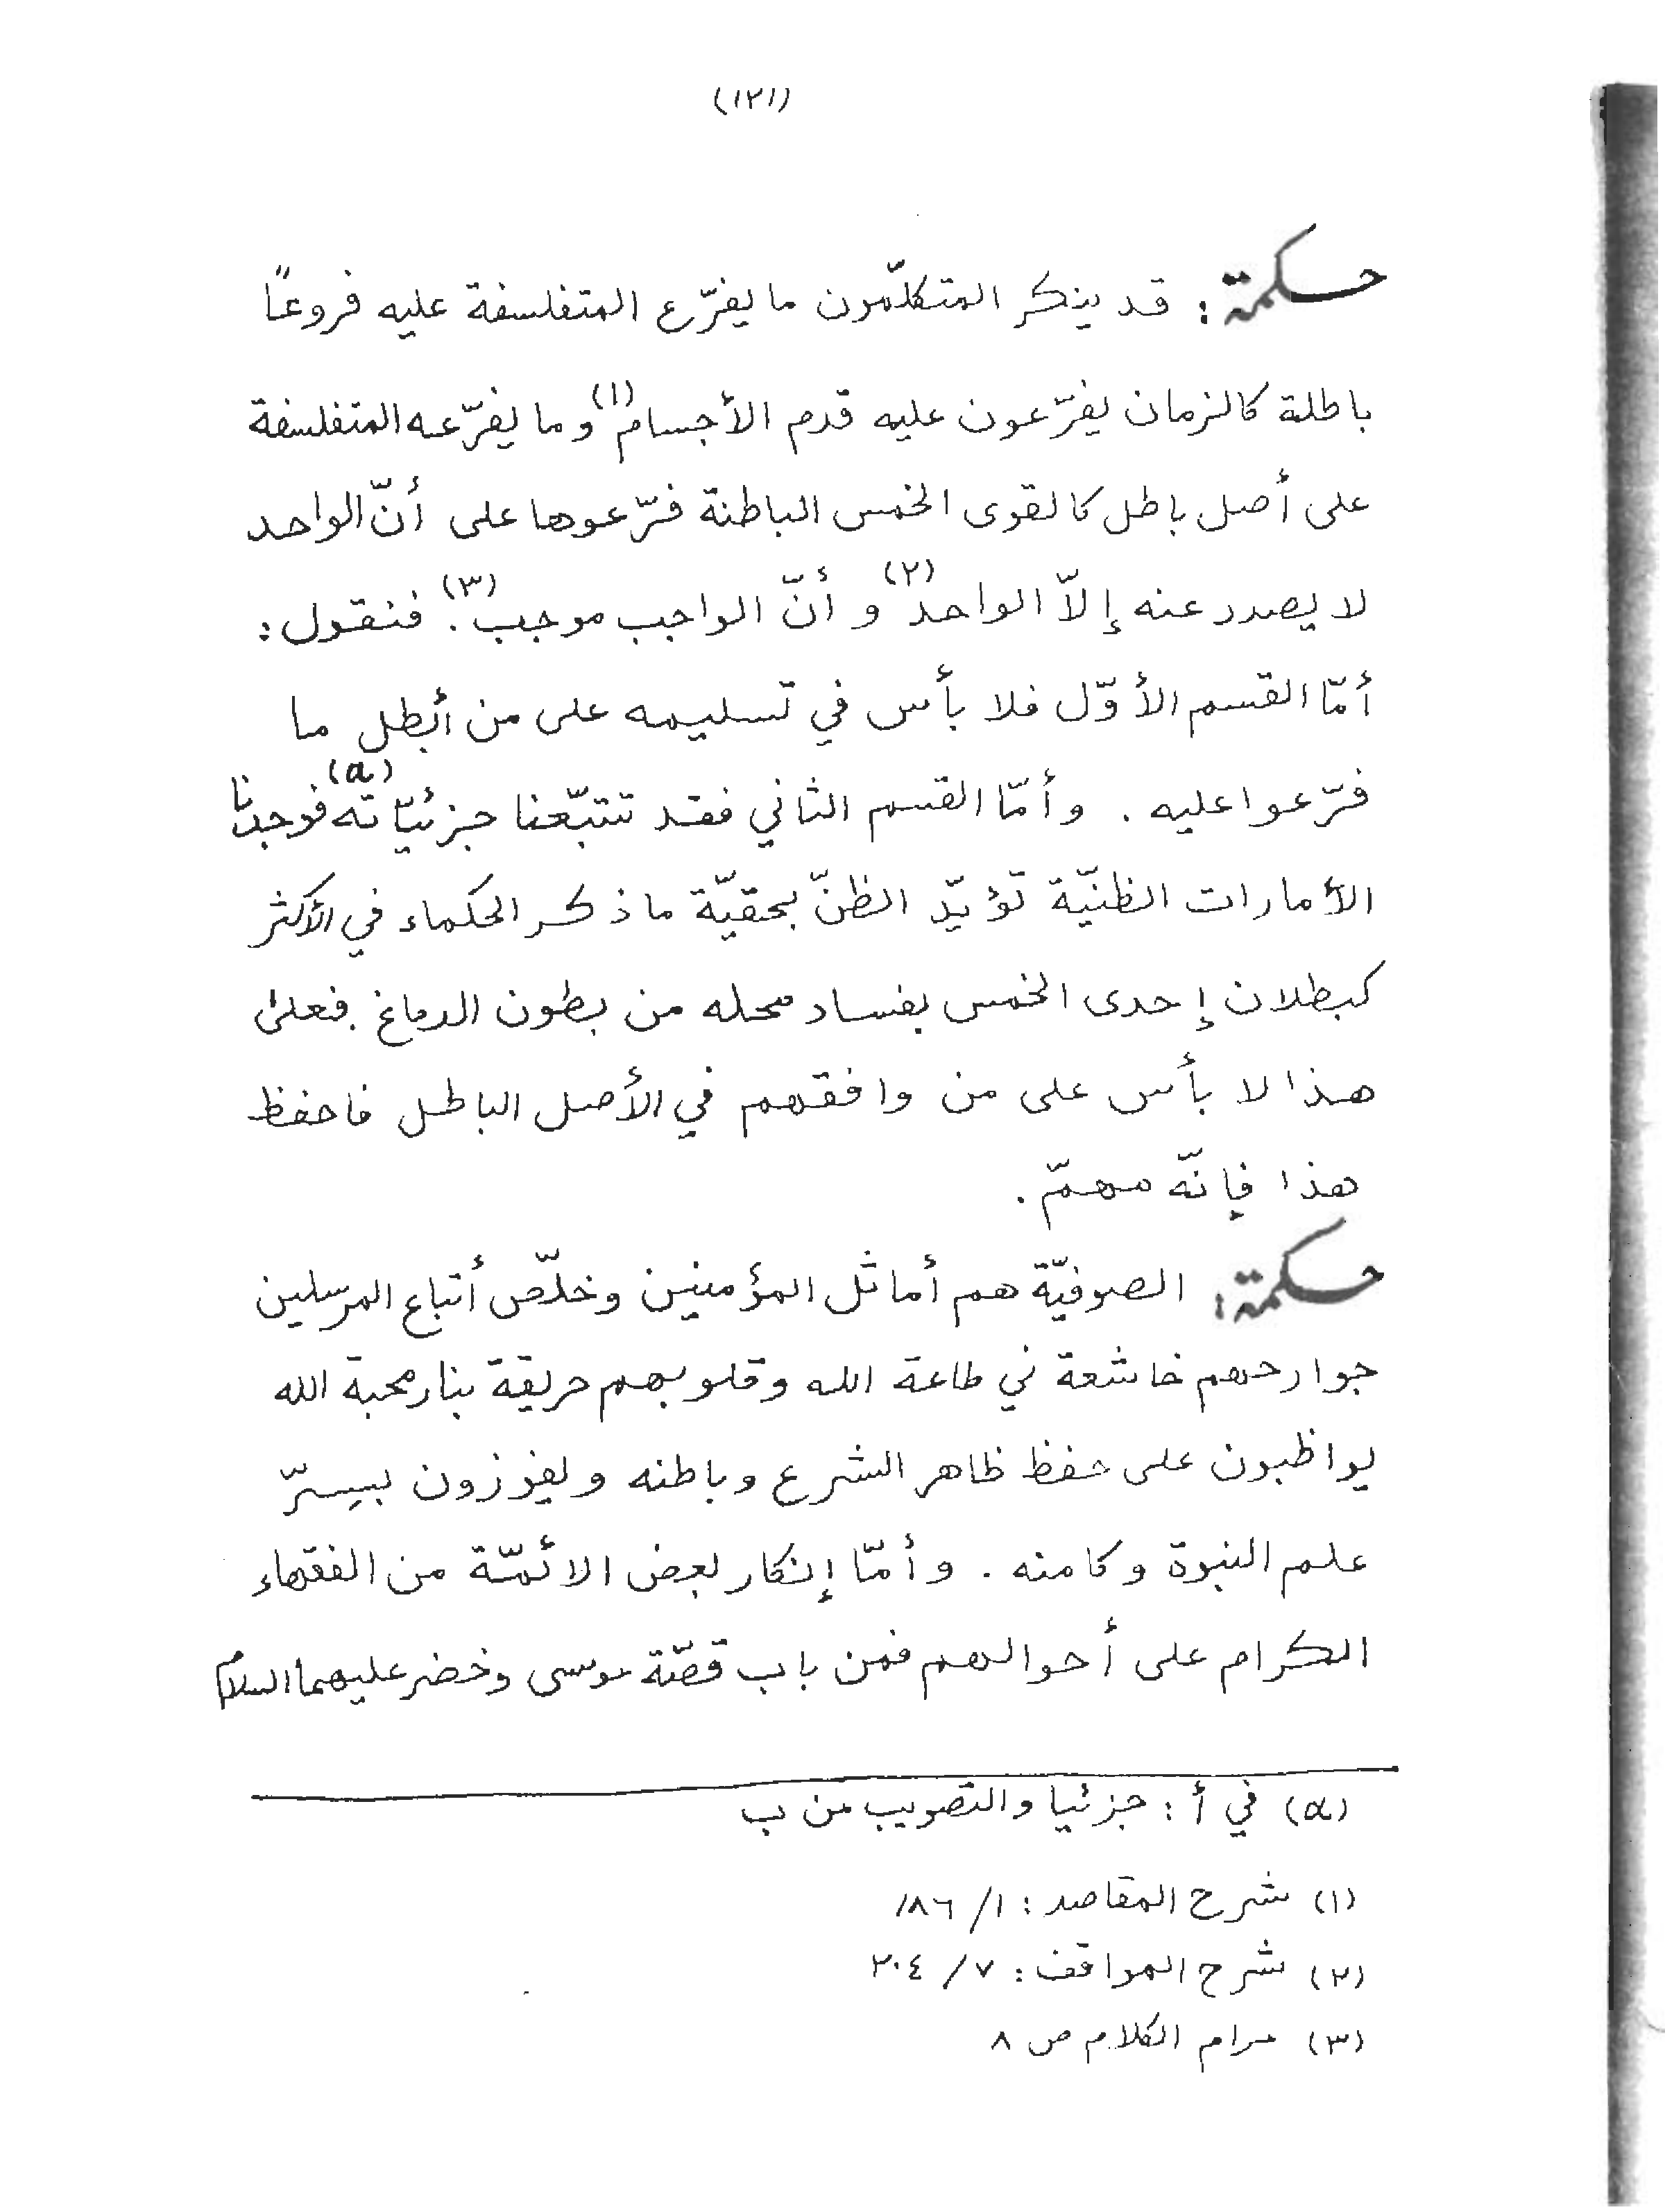 (١٢١)
حكمة: قد ينكر المتكلّمون ما يفرّع المتفلسفة عليه فروعًا
باطلة كالزمان يفرّعون عليه قدم الأجسام(١) وما يفرّعه المتفلسفة
على أصل باطل كالقوى الخمس الباطنة فرّعوها على أنّ الواحد
لا يصدر عنه إلاّ الواحد(٢) و أنّ الواجب موجب(٣). فنقول:
أمّا القسم الأوّل فلا بأس في تسليمه على من أبطل ما
فرّعوا عليه . وأمّا القسم الثاني فقد تتبّعنا جزئيّاته(a) فوجدنا
الأمارات الظنّية تؤيّد الظنّ بحقيّة ما ذكر الحكماء في الأكثر
كبطلان إحدى الخمس بفساد محله من بطون الدماغ . فعلى
هذا لا بأس على من وافقهم في الأصل الباطل فاحفظ
هذا فإنّه مهمّ .
حكمة: الصوفيّة هم أماثل المؤمنين وخلّص أتباع المرسلين
جوارحهم خاشعة في طاعة الله وقلوبهم حريقة بنار محبة الله
يواظبون على حفظ ظاهر الشرع وباطنه ويفوزون بسِرّ
علم النبوة وكامنه . وأمّا إنكار بعض الائمّة من الفقهاء
الكرام على أحوالهم فمن باب قصّة موسى وخضر عليهما السلام
(a) في أ : جزئيا والتصويب من ب
(١) شرح المقاصد : ١/ ١٨٦
(٢) شرح المواقف : ٧/ ٢٠٤
(٣) مرام الكلام ص ٨